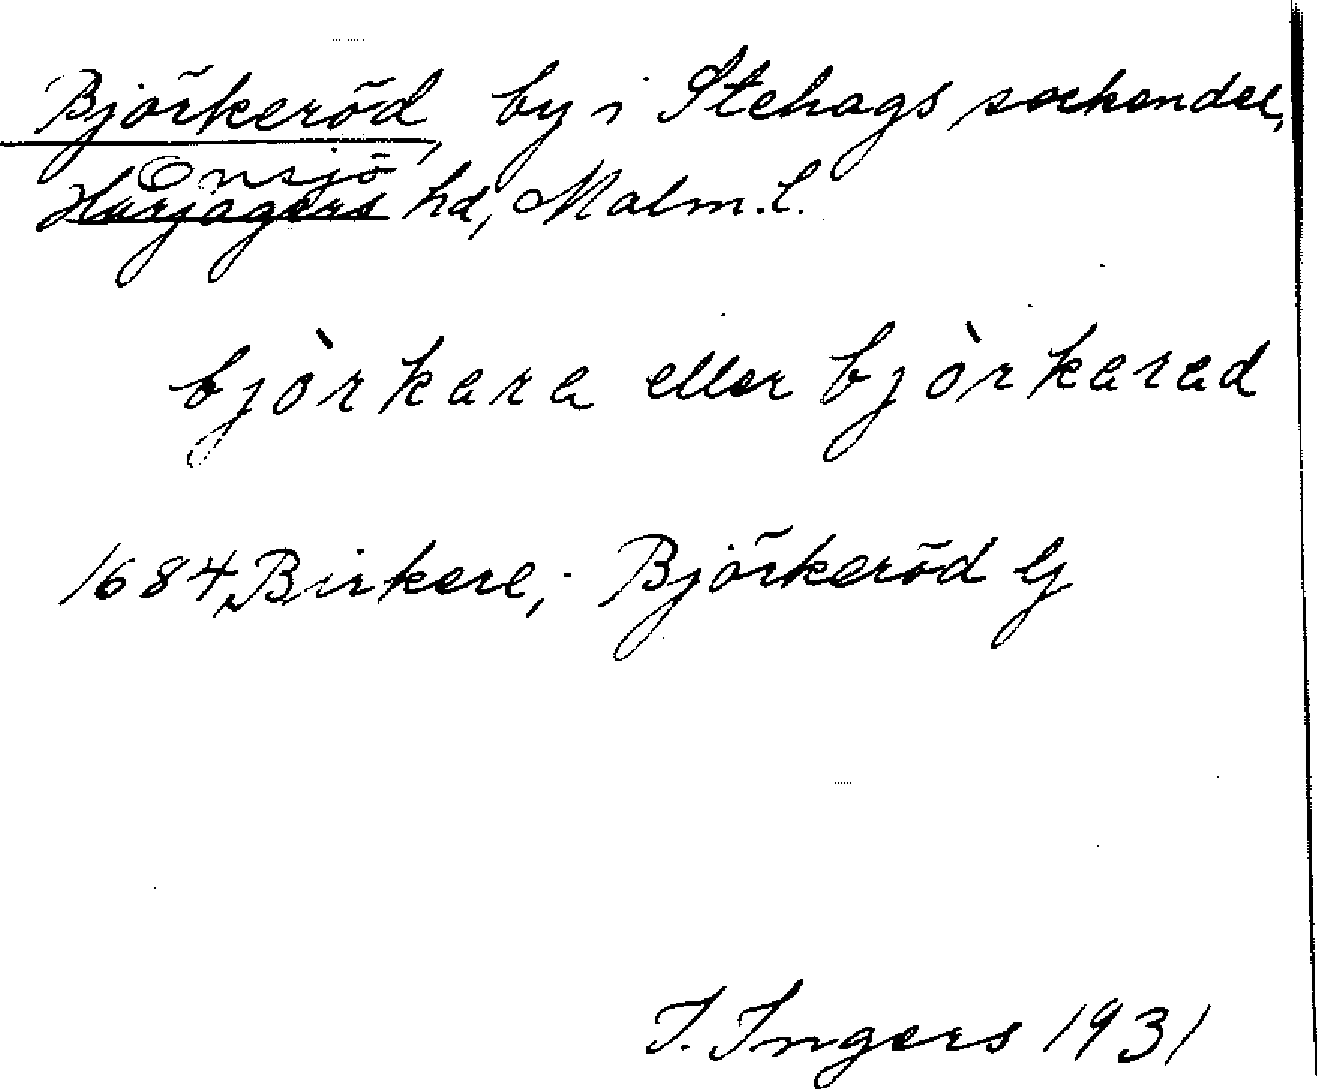 Björkeröd, by i Stehags sockendel,
Onsjö
Harjagers hd, Malm. l.
bjò̀rkara eller bjò̀rkarad
1684 Birkere; Björkeröd G
I. Ingers 1931